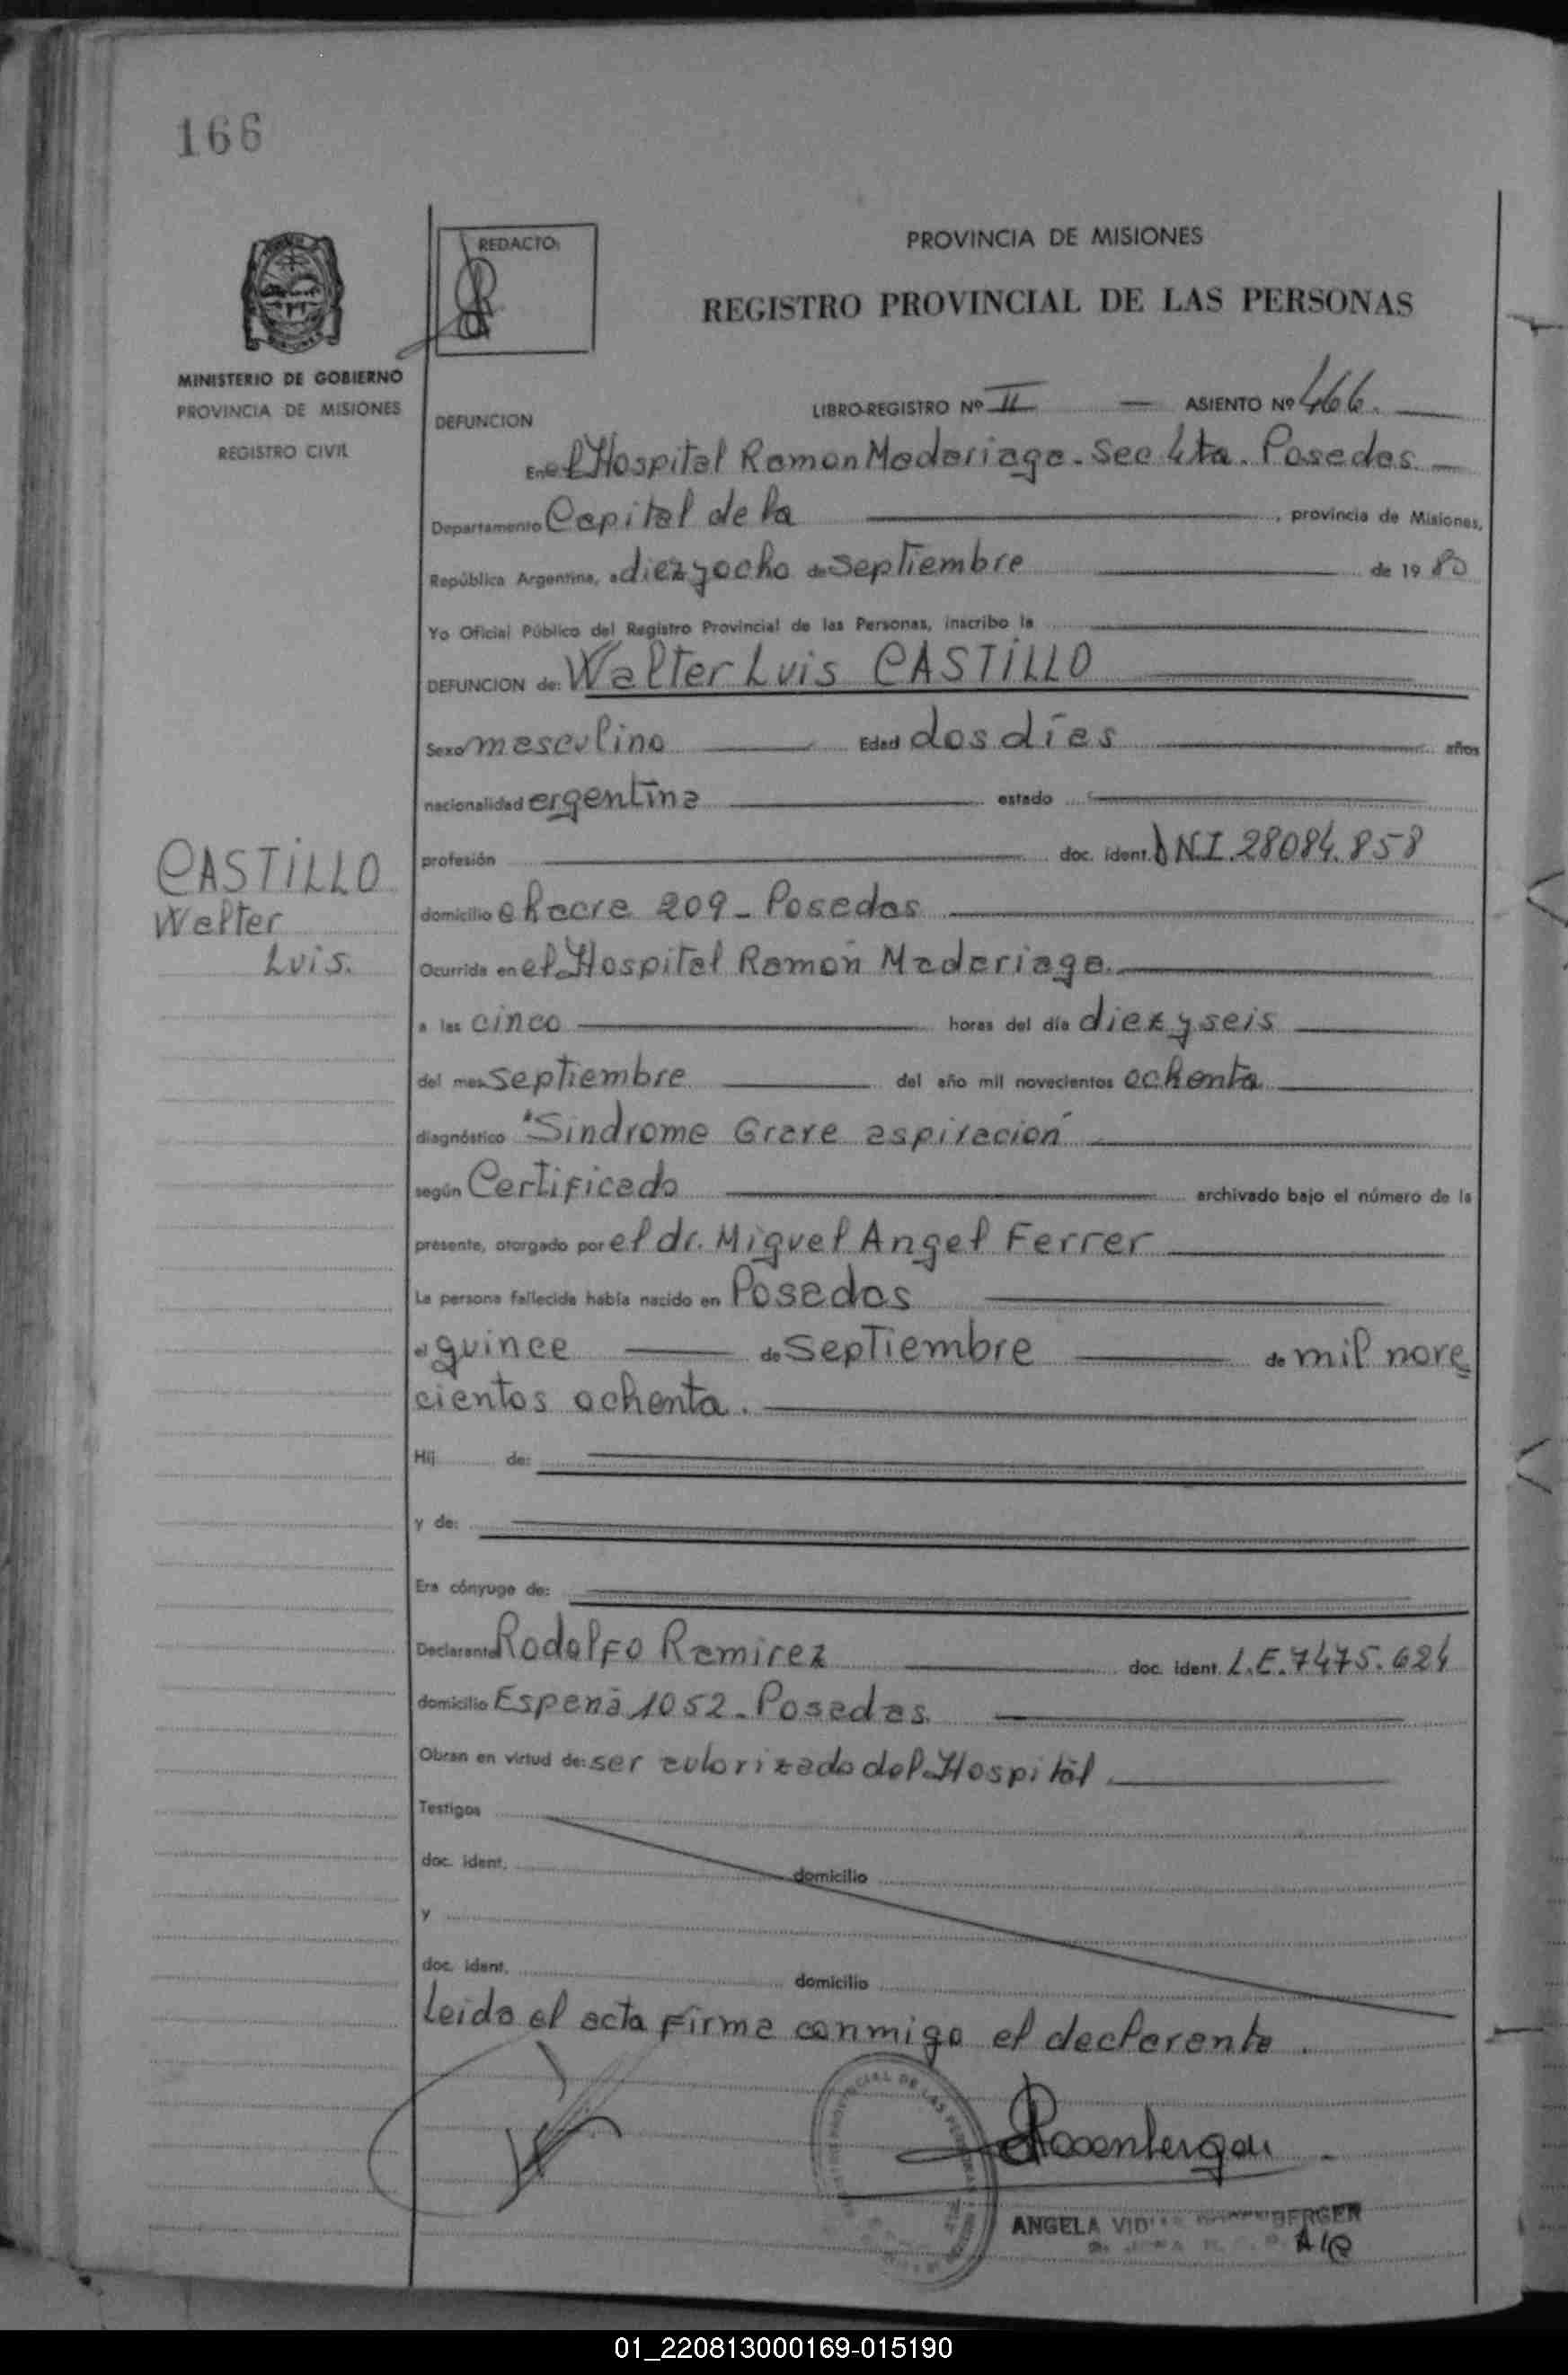 166
REDACTO:
PROVINCIA DE MISIONES
REGISTRO PROVINCIAL DE LAS PERSONAS
MINISTERIO DE GOBIERNO
PROVINCIA DE MISIONES
REGISTRO CIVIL
DEFUNCION LIBRO-REGISTRO Nº II — ASIENTO Nº 466.
En el Hospital Ramon Madariaga - Sec 4ta. Posadas
Departamento Capital de la, provincia de Misiones,
República Argentina, a diez y ocho de septiembre de 1980
Yo Oficial Público del Registro Provincial de las Personas, inscribo la
DEFUNCION de: Walter Luis CASTILLO
Sexo masculino Edad dos días años
nacionalidad argentina estado
profesión doc. ident. DNI. 28084.858
CASTILLO
Walter
Luis.
domicilio chacra 209 - Posadas
Ocurrida en el Hospital Ramón Madariaga.
a las cinco horas del día diez y seis
del mes septiembre del año mil novecientos ochenta
diagnóstico "Sindrome Grave aspiración"
según Certificado archivado bajo el número de la
presente, otorgado por el dr. Miguel Angel Ferrer
La persona fallecida había nacido en Posadas
el quince de septiembre de mil nove
cientos ochenta.
Hij de:
y de:
Era cónyuge de:
Declarante Rodolfo Ramirez doc. ident. L.E. 7475.624
domicilio España 1052 - Posadas.
Obran en virtud de: ser autorizado del Hospital
Testigos
doc. ident. domicilio
y
doc. ident. domicilio
Leida el acta firma conmigo el declarante.
PROVINCIAL DE LAS PERSONAS
ANGELA BERGER
01_220813000169-015190